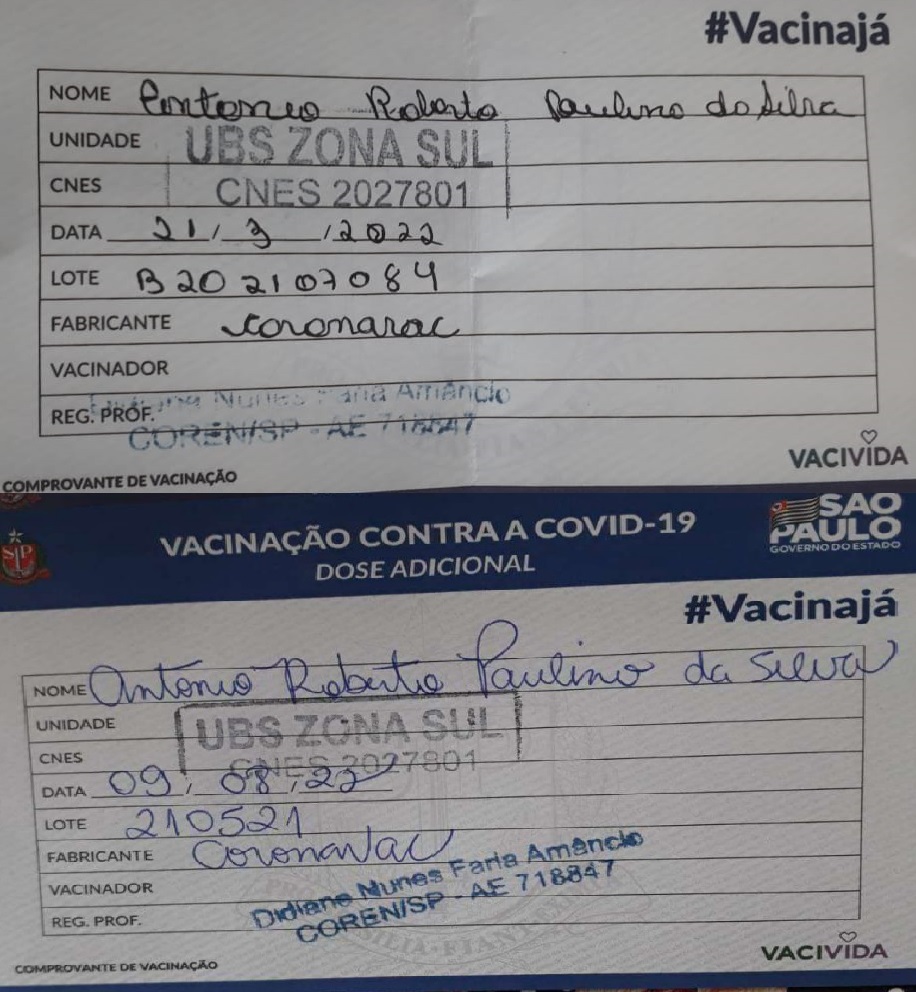 #Vacinajá
NOME Antonio Roberto Paulino da Silva
UNIDADE UBS ZONA SUL
CNES CNES 2027801
DATA 21/3/2022
LOTE B202107084
FABRICANTE coronavac
VACINADOR
Didiane Nunes Faria Amâncio
REG. PROF. COREN/SP - AE 718847
VACIVIDA
COMPROVANTE DE VACINAÇÃO
SP
VACINAÇÃO CONTRA A COVID-19
DOSE ADICIONAL
SAO PAULO
GOVERNO DO ESTADO
#Vacinajá
NOME Antonio Roberto Paulino da Silva
UNIDADE UBS ZONA SUL
CNES CNES 2027801
DATA 09/08/22
LOTE 210521
FABRICANTE CoronaVac
VACINADOR Didiane Nunes Faria Amâncio
REG. PROF. COREN/SP - AE 718847
VACIVIDA
COMPROVANTE DE VACINAÇÃO